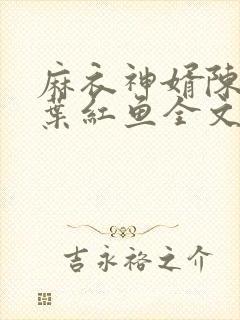 麻衣神婿陈
葉红鱼全文
吉永裕之介